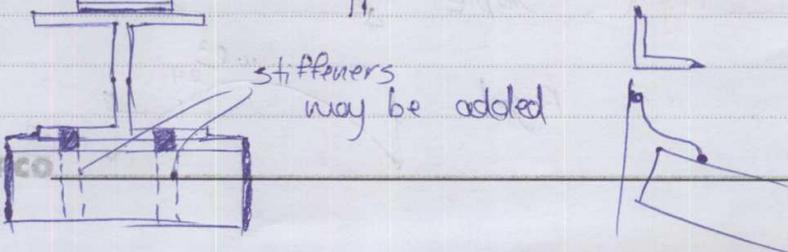 stiffeners
may be added